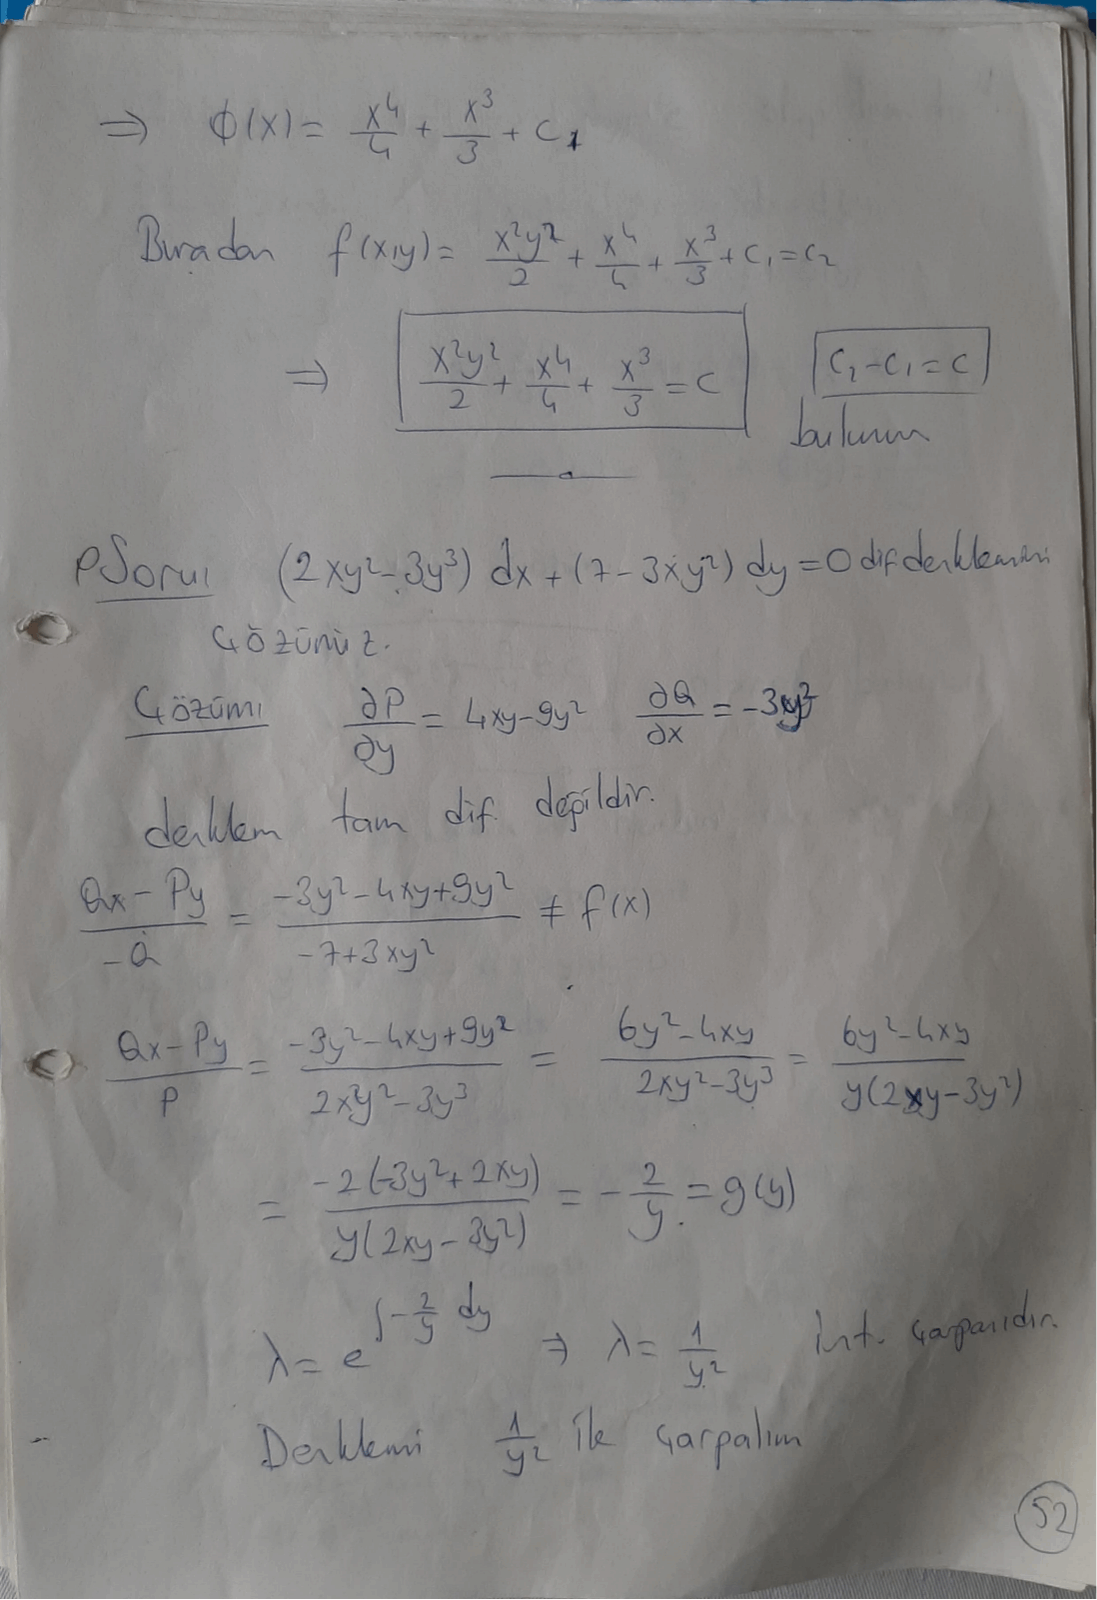 ⇒ ϕ(x) = x⁴/4 + x³/3 + C₁
Buradan f(x,y) = x²y²/2 + x⁴/4 + x³/3 + C₁ = C₂
⇒ x²y²/2 + x⁴/4 + x³/3 = C C₂ - C₁ = C
bulunur
Soru: (2xy² - 3y³) dx + (7 - 3xy²) dy = 0 dif denklemini
Çözünüz.
Çözüm: ∂P/∂y = 4xy - 9y² ∂Q/∂x = -3y²
denklem tam dif. değildir.
(Qx - Py)/(-Q) = (-3y² - 4xy + 9y²)/(-7 + 3xy²) ≠ f(x)
(Qx - Py)/P = (-3y² - 4xy + 9y²)/(2xy² - 3y³) = (6y² - 4xy)/(2xy² - 3y³) = (6y² - 4xy)/(y(2xy - 3y²))
= (-2(-3y² + 2xy))/(y(2xy - 3y²)) = -2/y = g(y)
λ = e^(∫ -2/y dy) ⇒ λ = 1/y² int. çarpanıdır.
Denklemi 1/y² ile çarpalım
52